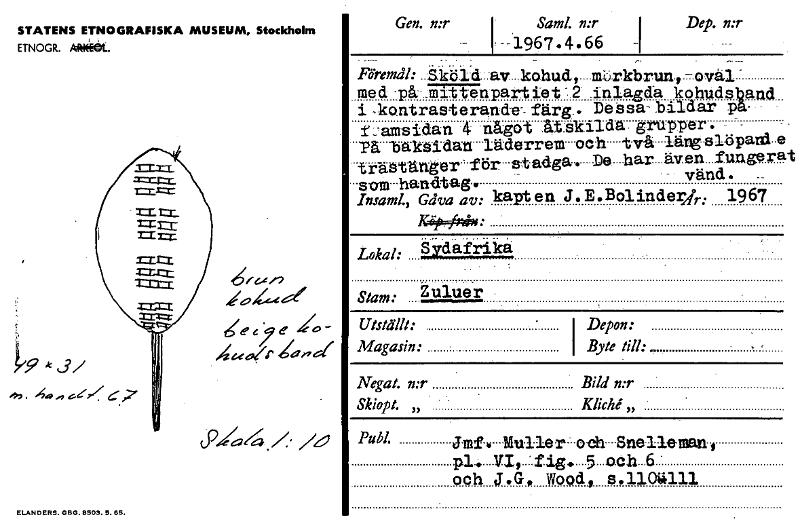 STATENS ETNOGRAFISKA MUSEUM, Stockholm
ETNOGR. ARKEOL.
brun
kohud
beige ko-
hudsband
49 x 31
m. handt. 67
Skala 1:10
ELANDERS. GBG. 8503. 5. 65.
Gen. n:r Saml. n:r Dep. n:r
1967.4.66
Föremål: Sköld av kohud, mörkbrun, oval
med på mittenpartiet 2 inlagda kohudsband
i kontrasterande färg. Dessa bildar på
f amsidan 4 något åtskilda grupper.
På baksidan läderrem och två längslöpand e
trästänger för stadga. De har även fungerat
som handtag. vänd.
Insaml., Gåva av: kapten J.E.Bolinder År: 1967
Köp från:
Lokal: Sydafrika
Stam: Zuluer
Utställt: Depon:
Magasin: Byte till:
Negat. n:r Bild n:r
Skiopt. „ Kliché „
Publ. Jmf. Muller och Snelleman,
pl. VI, fig. 5 och 6
och J.G. Wood, s.110&111